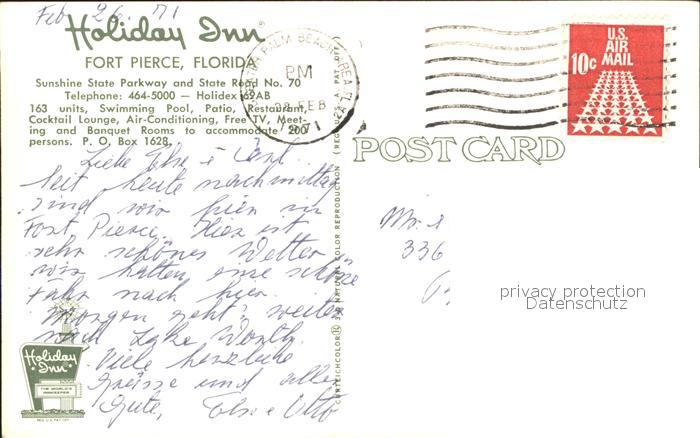 Feb 26. 71
Holiday Inn®
FORT PIERCE, FLORIDA
Sunshine State Parkway and State Road No. 70
Telephone: 464-5000 — Holidex 69AB
163 units, Swimming Pool, Patio, Restaurant,
Cocktail Lounge, Air-Conditioning, Free TV, Meet-
ing and Banquet Rooms to accommodate 200
persons. P. O. Box 1628.
Liebe Else &
Seit heute nachmittag
sind wir hier in
Fort Pierce. Hier ist
sehr schönes Wetter
wir hatten eine schöne
Fahr nach hier.
Morgen geht's weiter
nach Lake Worth.
Viele herzliche
Grüsse und alles
Gute, Otto
Holiday
Inn
THE WORLD'S
INNKEEPER
REG. U.S. PAT. OFF.
NATURAL COLOR REPRODUCTION
PALM BEACH AREA
PM
FEB
1971
U.S.
AIR
MAIL
10c
POST CARD
Mr &
336
privacy protection
Datenschutz